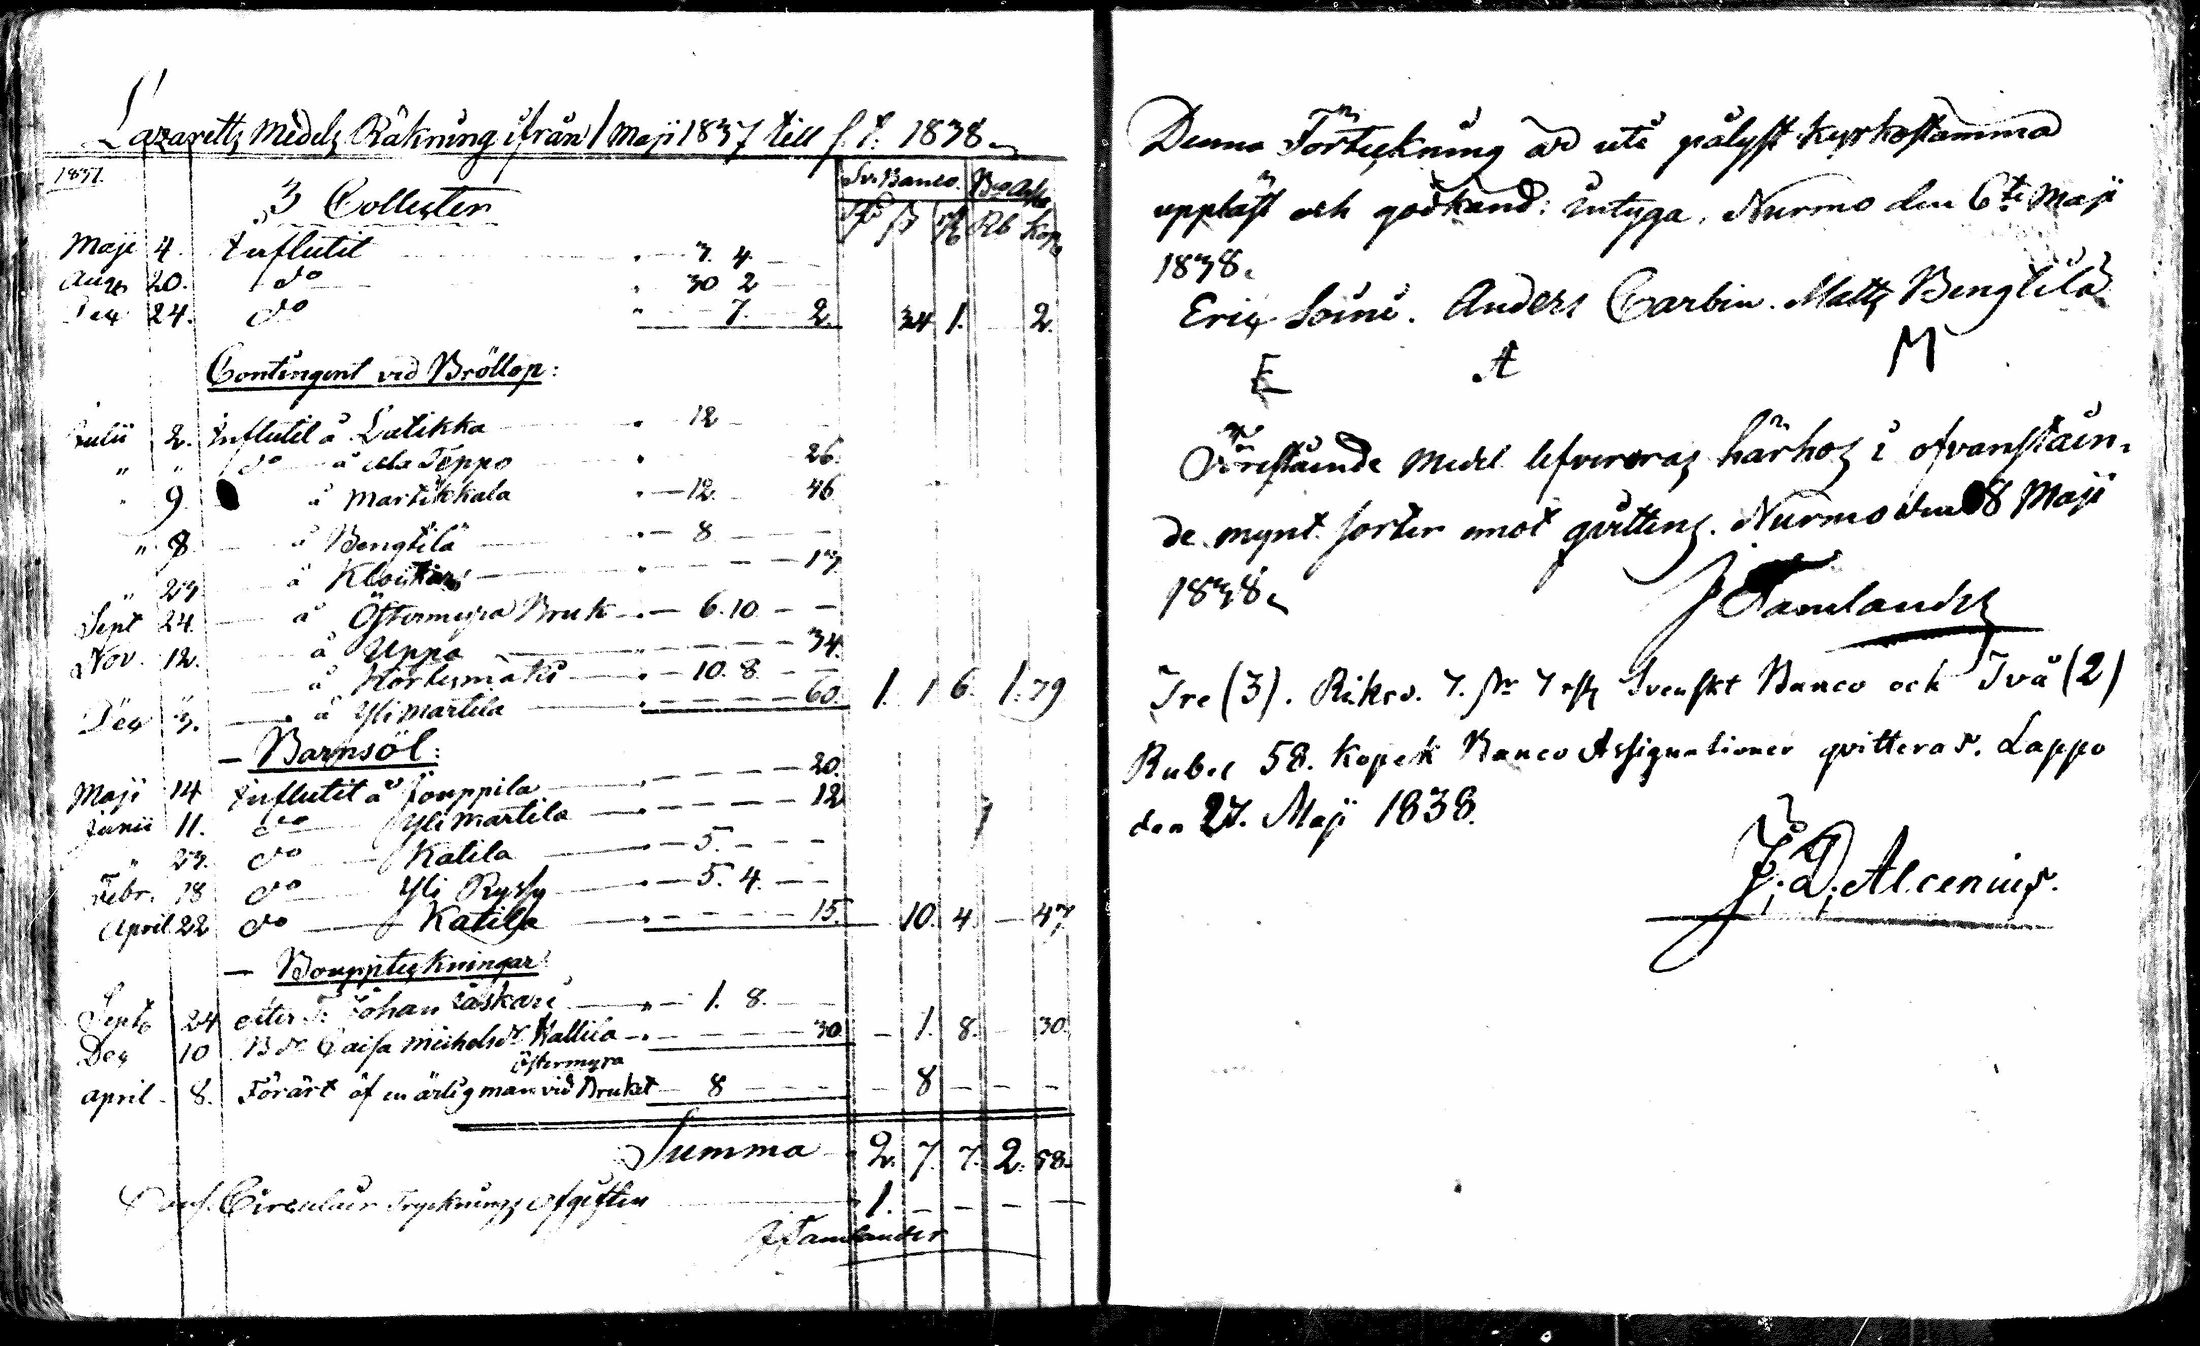 Lazaretts Medels Räkning ifrån 1 Maji 1837 till s. t. 1838.
1837. Sv. Banco. Bco Ass
3 Collecter Rd ß rst Rb Kop
Maji 4. Influtit 3. 4.
Aug 20. do 30 2
Dec 24. do 7. 2. 34 1. 2.
Contingent vid Bröllop:
Julii 2. Influtit å Latikka 12
" " do å Ala Teppo 26.
" 9. å Martikkala 12. 46
" 9. å Bengtilä 8
" 23 å 17
Sept 24. å Östermyra Bruk 6. 10
Nov. 12. å Uppa 34.
å 10. 8.
Dec 3. å Yli Martila 60. 1. 1 6. 1. 79
Barnsöl:
Maji 14 Influtit å Jouppila 20.
Junii 11. do Yli Martila 12
" 23. do Katila 5.
Febr. 18 do Yli Ryssy 5. 4.
April 22 do Katila 15. 10. 4. 47
Bouppteckningar
Sept 24 efter Johan 1. 8.
Dec 10 Caisa Michelsdr Wallila 30 1. 8. 30.
Östermyra
April 8. Förärt af en ärlig man vid Bruket 8 8
Summa 2. 7. 7. 2. 58.
Circulair Trycknings afgiften 1.
J Tamlander
Denna Förteckning är uti pålyst Kyrkostämma
uppläst och godkänd: intyga, Nurmo den 6te Maji
1838.
Eric Soini. Anders Carbin. Matts Bengtilä
E A M
Förestående Medel lefvereras härhos i ofvanståen-
de mynt sorter emot qvittens. Nurmo den 8 Maji
1838.
J Tamlander
Tre (3). Riksd. 7. ß 7 rst Svenskt Banco och Två (2)
Rubel 58. Kopek Banco Assignationer qvitteras. Lappo
den 27. Maji 1838.
J. D. Alcenius.